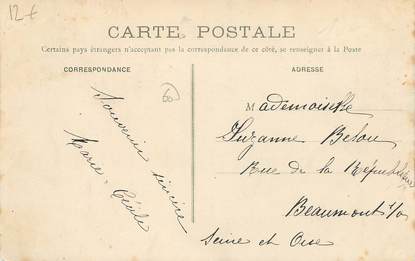 12 €
CARTE POSTALE
Certains pays étrangers n'acceptant pas la correspondance de ce côté, se renseigner à la Poste
CORRESPONDANCE
ADRESSE
60
Souvenir sincère
Marie-Cécile
Mademoiselle
Suzanne Belou
Rue de la République
Beaumont s/o
Seine et Oise